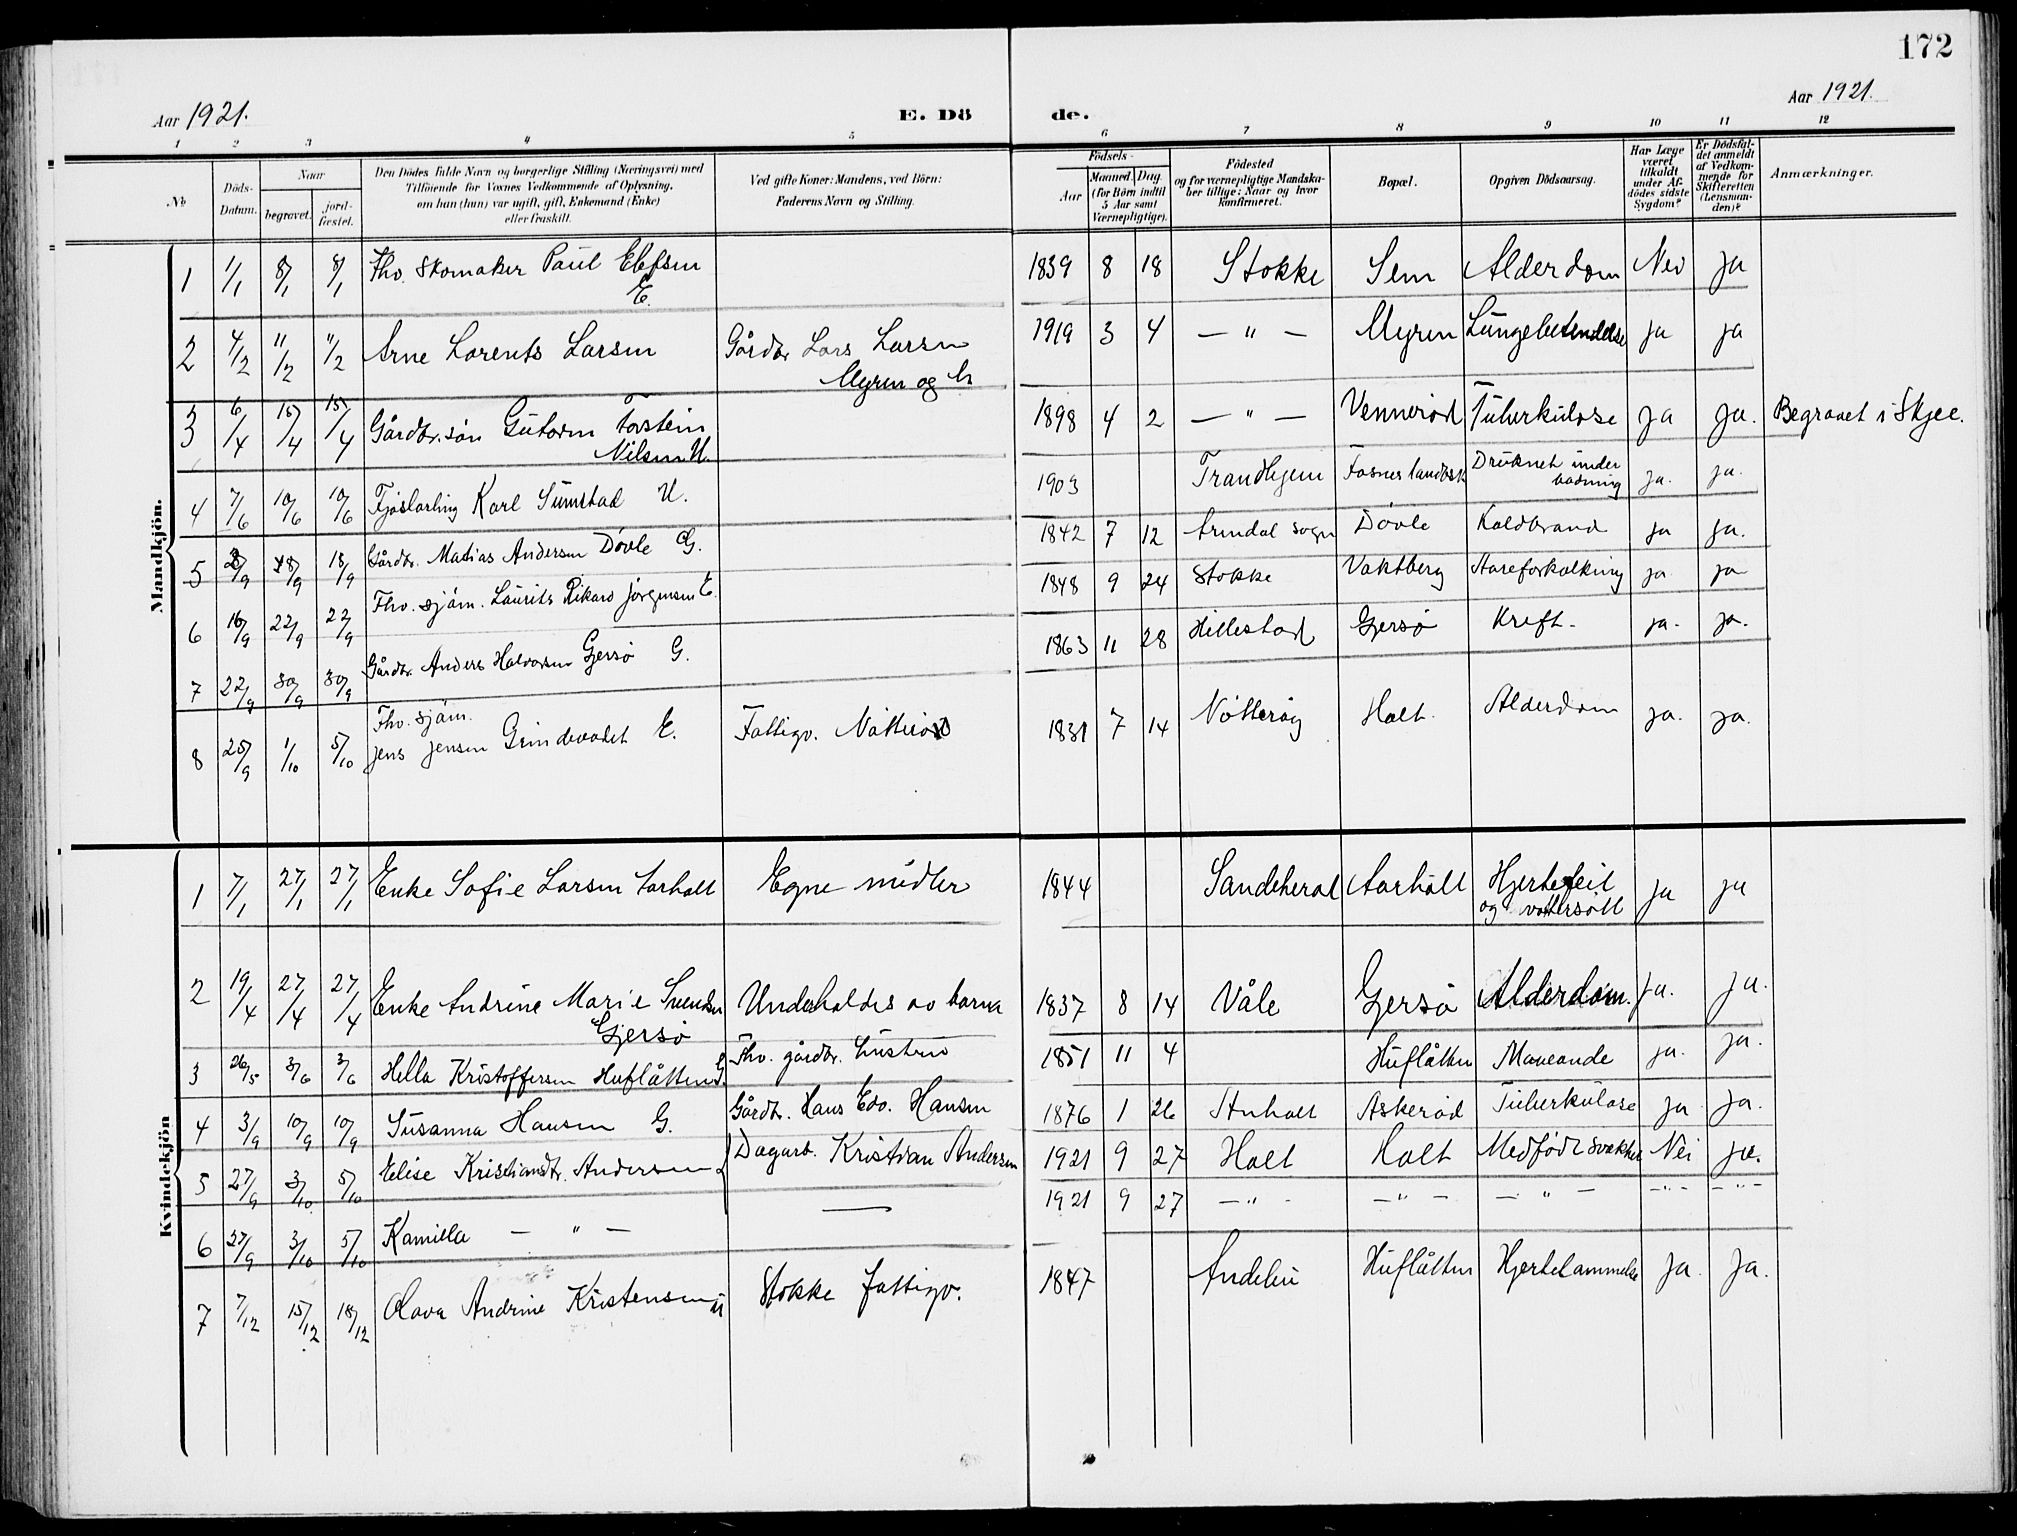 172
Aar 1921.
E. Dö de.
Aar 1921.
1 2 3 4 5 6 7 8 9 10 11 12
No
Döds-Datum.
Naar
begravet.
jord-fæstet.
Den Dödes fulde Navn og borgerlige Stilling (Næringsvei) med
Tilföiende for Voxnes Vedkommende af Oplysning,
om han (hun) var ugift, gift, Enkemand (Enke)
eller fraskilt.
Ved gifte Koner: Mandens, ved Börn:
Faderens Navn og Stilling.
Födsels-
Aar
Maaned. Dag.
(for Börn indtil
5 Aar samt
Værnepligtige).
Födested
og for værnepligtige Mandska-
ber tillige: Naar og hvor
konfirmeret.
Bopæl.
Opgiven Dödsaarsag.
Har Læge
været
tilkaldt
under Af-
dödes sidste
Sygdom?
Er Dödsfal-
det anmeldt
af Vedkom-
mende for
Skifteretten
(Lensman-
den)?
Anmærkninger.
Mandkjön.
1 1/1 8/1 8/1 Fhv. Skomaker Paul Elefsen E. 1839 8 18 Stokke Sem Alderdom Nei ja
2 4/2 11/2 11/2 Arne Lorents Larsen Gårdbr. Lars Larsen 1919 3 4 — " — Myren Lungebetendelse ja ja
Myren og h
3 6/4 15/4 15/4 Gårdbr.søn Gutorm Torstein 1898 4 2 — " — Vennerød Tuberkulose ja ja. Begravet i Skjee.
Nilsen U.
4 7/6 10/6 10/6 Fjøslærling Karl Sumstad U. 1903 Trondhjem Fosnes landbrsk Druknet under ja. ja.
badning
5 /9 18/9 18/9 Gårdbr. Matias Andersen Døvle G. 1842 7 12 Arendal sogn Døvle Koldbrand ja ja.
6 16/9 22/9 22/9 Fhv. sjøm. Laurits Rikard Jørgensen E. 1848 9 24 Stokke Vaktberg Aareforkalkning ja ja
7 22/9 30/9 30/9 Gårdbr. Anders Halvorsen Gjersø G. 1863 11 28 Hillestad Gjersø Kreft. ja. ja.
8 25/9 1/10 5/10 Fhv. sjøm.
Jens Jensen Grindevadet E. Fattigv. Nøtterø 1831 7 14 Nøtterøy Holt. Alderdom ja. ja.
Kvindekjön
1 7/1 27/1 27/1 Enke Sofie Larsen Aarholt Egne midler 1844 Sandeherad Aarholt Hjertefeil ja ja
og vattersott
2 19/4 27/4 27/4 Enke Andrine Marie Svendsen Underholdes av barna 1837 8 14 Våle Gjersø Alderdom. ja. ja.
Gjersø
3 26/5 3/6 3/6 Hella Kristoffersen Huflåtten G. Fhv. gårdbr. 1851 11 4 Huflåtten ja. ja.
4 3/9 10/9 10/9 Susanna Hansen G. Gårdbr. Hans Edv. Hansen 1876 1 26 Anholt Askerød Tuberkulose ja ja.
5 27/9 3/10 5/10 Elise Kristiansdtr. Andersen Dagarb. Kristian Andersen 1921 9 27 Holt Holt Medfødt svakhet Nei ja.
6 27/9 3/10 5/10 Kamilla — " — — 1921 9 27 — " — — " — — " — — " — — " —
7 7/12 15/12 18/12 Olava Andrine Kristensen U Stokke fattigv. 1847 Andebu Huflåtten Hjertelammelse ja ja.